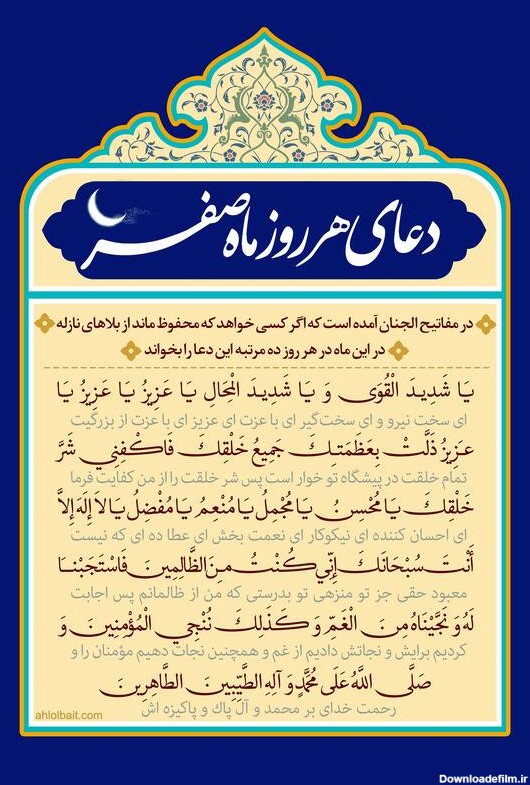 دعای هر روز ماه صفر
در مفاتیح الجنان آمده است که اگر کسی خواهد که محفوظ ماند از بلاهای نازله
در این ماه در هر روز ده مرتبه این دعا را بخواند
يَا شَدِيدَ الْقُوَى وَ يَا شَدِيدَ الْمِحَالِ يَا عَزِيزُ يَا عَزِيزُ يَا
ای سخت نیرو و ای سخت‌گیر ای با عزت ای عزیز ای با عزت از بزرگیت
عَزِيزُ ذَلَّتْ بِعَظَمَتِكَ جَمِيعُ خَلْقِكَ فَاكْفِنِي شَرَّ
تمام خلقت در پیشگاه تو خوار است پس شر خلقت را از من کفایت فرما
خَلْقِكَ يَا مُحْسِنُ يَا مُجْمِلُ يَا مُنْعِمُ يَا مُفْضِلُ يَا لَا إِلَهَ إِلاَّ
ای احسان کننده ای نیکوکار ای نعمت بخش ای عطا ده ای که نیست
أَنْتَ سُبْحَانَكَ إِنِّي كُنْتُ مِنَ الظَّالِمِينَ فَاسْتَجَبْنَا
معبود حقی جز تو منزهی تو بدرستی که من از ظالمانم پس اجابت
لَهُ وَ نَجَّيْنَاهُ مِنَ الْغَمِّ وَ كَذَلِكَ نُنْجِي الْمُؤْمِنِينَ وَ
کردیم برایش و نجاتش دادیم از غم و همچنین نجات دهیم مؤمنان را و
صَلَّى اللَّهُ عَلَى مُحَمَّدٍ وَ آلِهِ الطَّيِّبِينَ الطَّاهِرِينَ
رحمت خدای بر محمد و آل پاک و پاکیزه اش
ahlolbait.com
Downloadefilm.ir